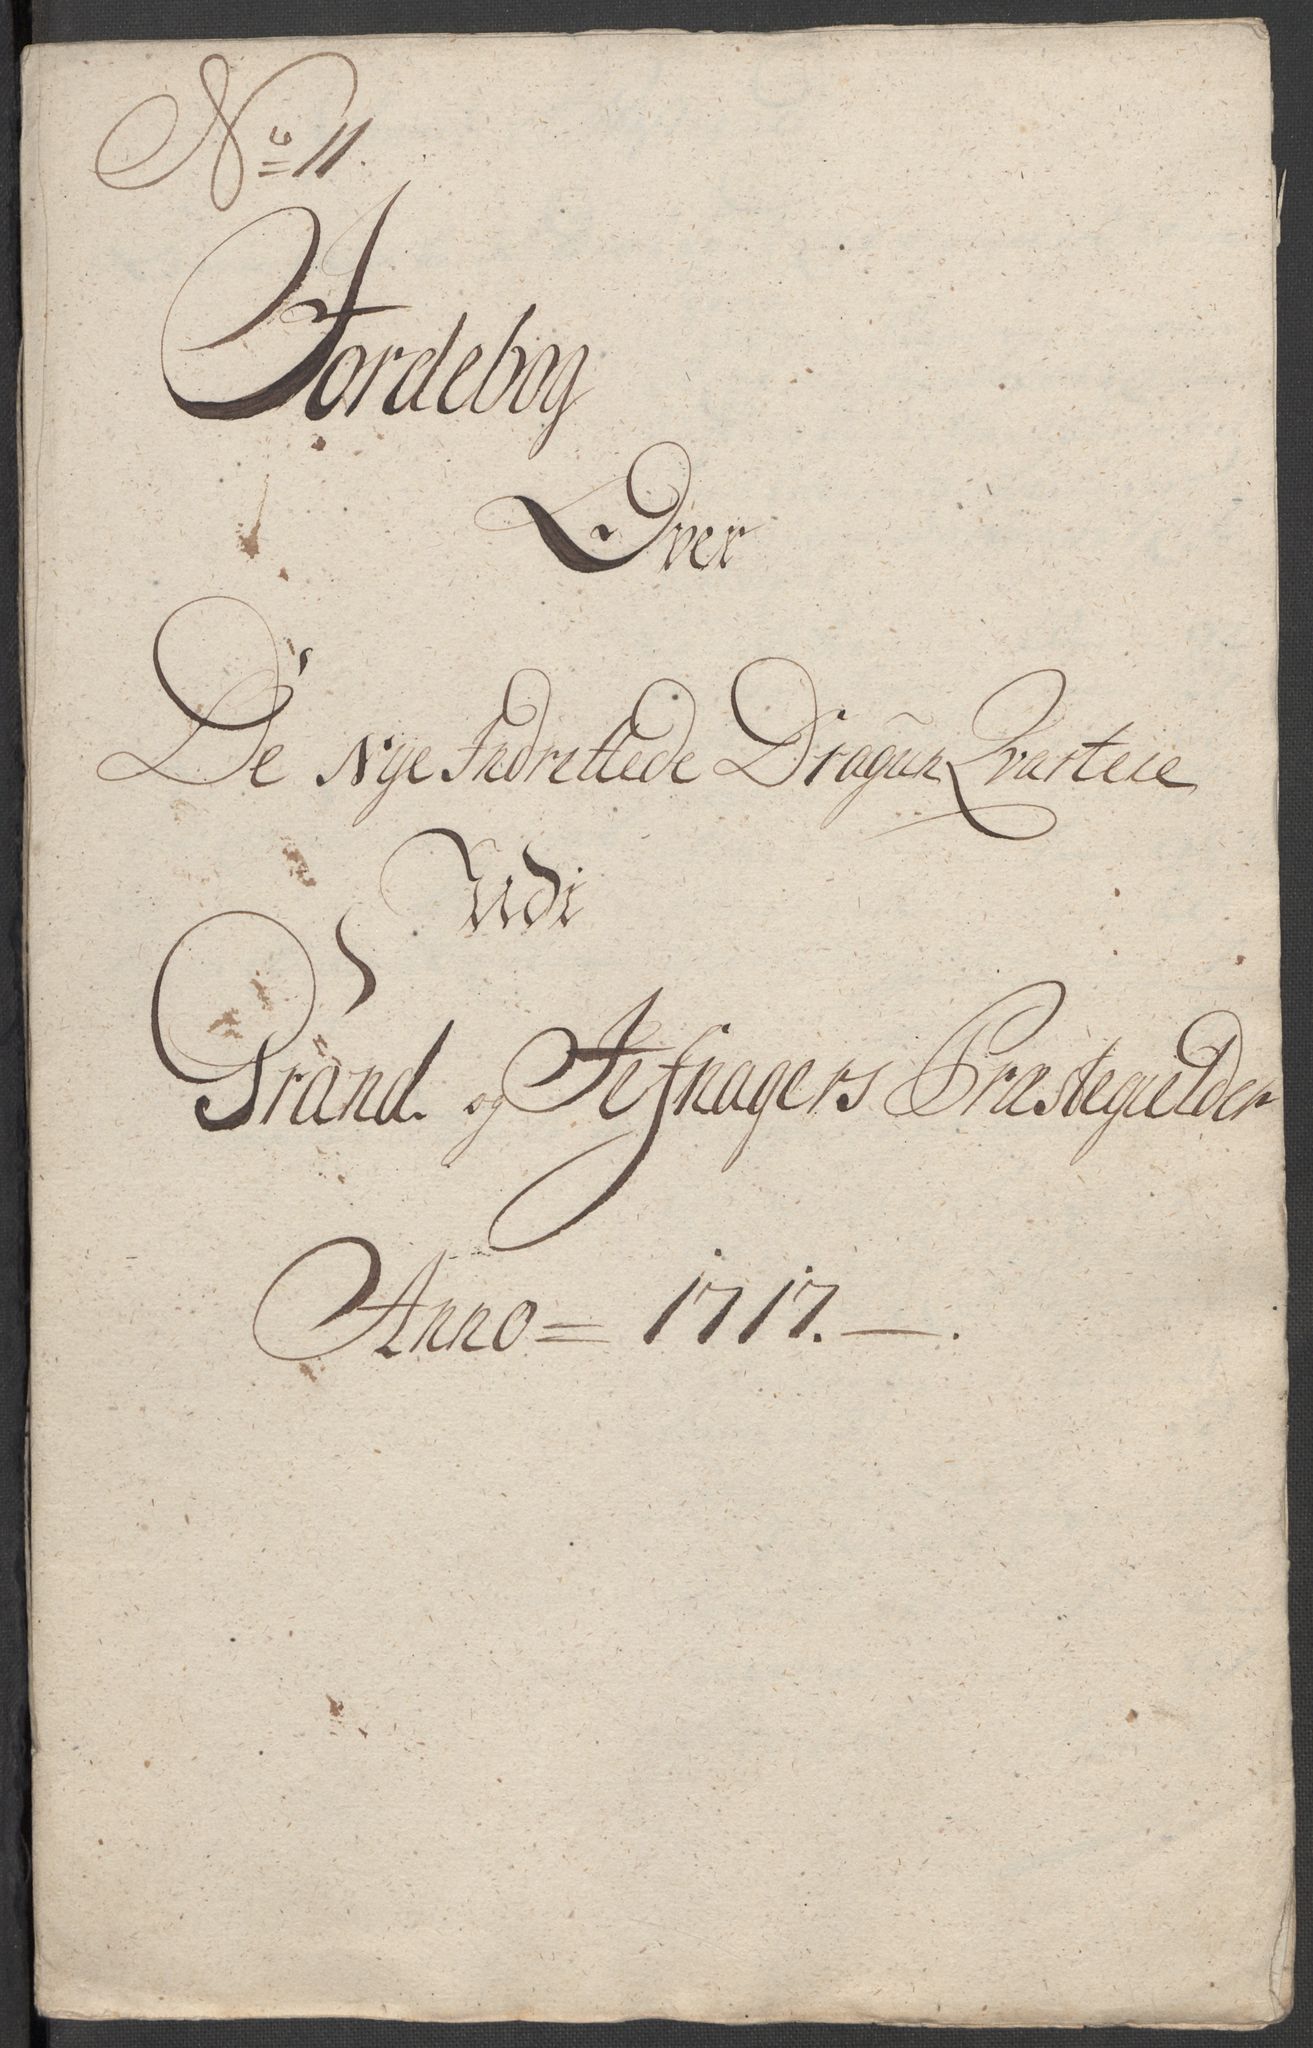 No 11.
Jordebog
Over
De Nye Indrettede Dragun Qvarteie
Udi
Grand og Jefnagers Præstegielder
Anno = 1717. — .